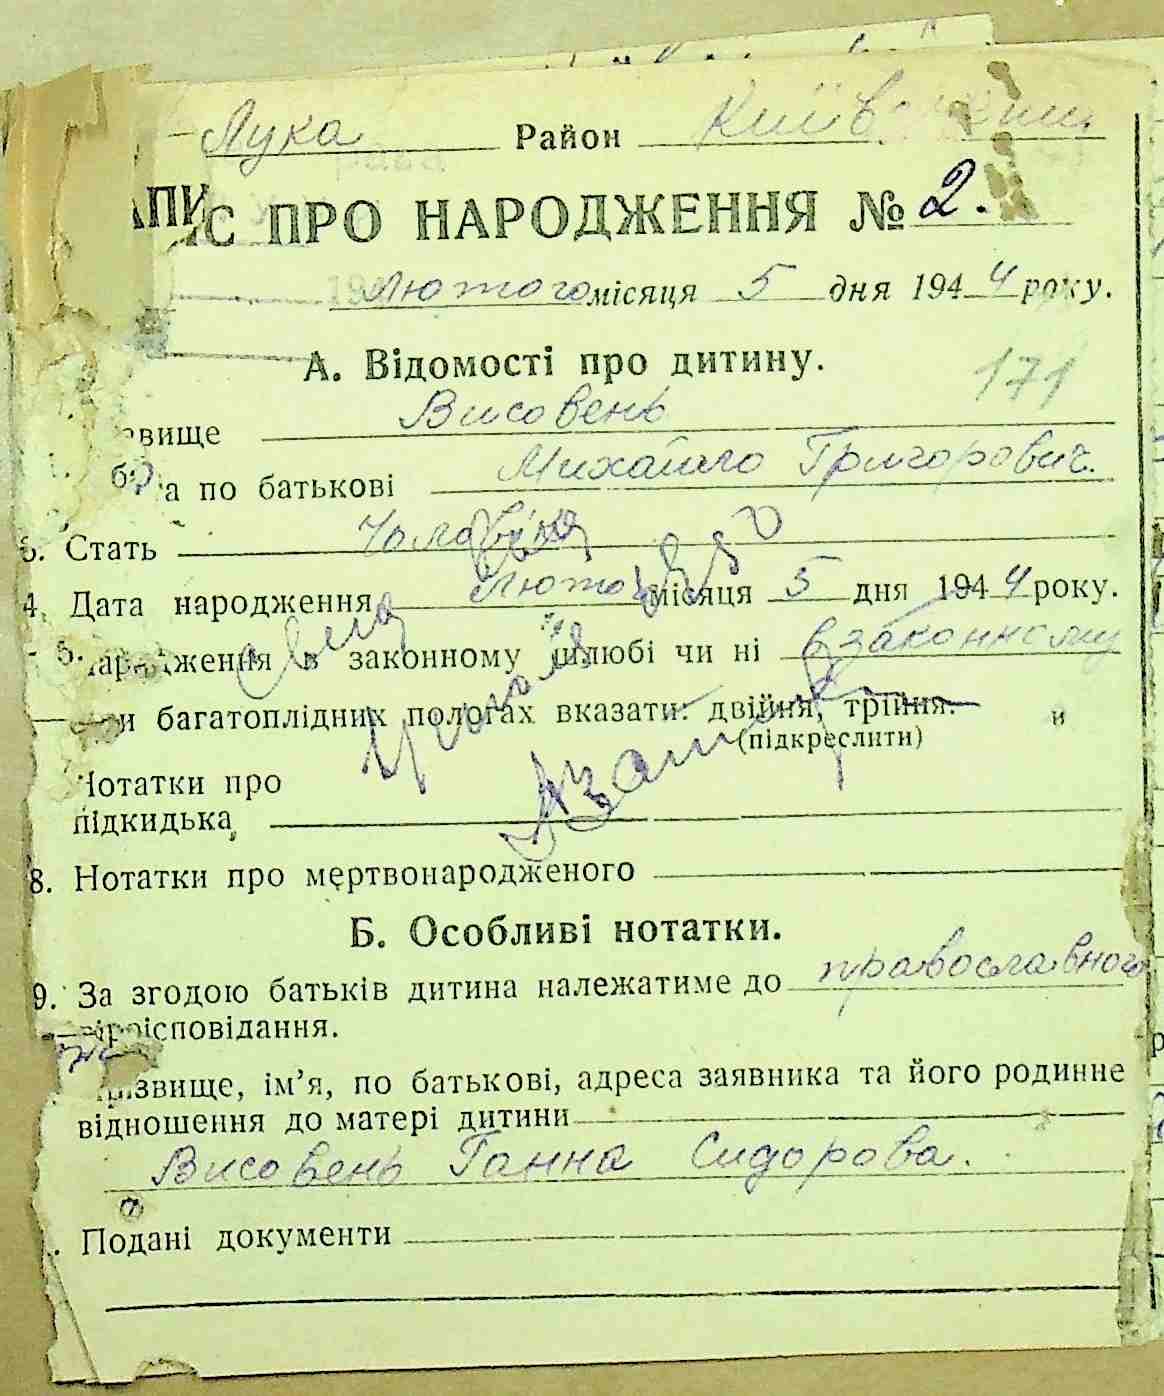 Лука Район Київський
АПИС ПРО НАРОДЖЕННЯ № 2.
Лютого місяця 5 дня 1944 року.
А. Відомості про дитину.
171
звище Висовень
а по батькові Михайло Григорович.
3. Стать Чоловіча
4. Дата народження Лютого місяця 5 дня 1944 року.
5. народження в законному шлюбі чи ні в законному
и багатоплідних пологах вказати: двійня, трійня.
(підкреслити)
Нотатки про
підкидька
8. Нотатки про мертвонародженого
Б. Особливі нотатки.
9. За згодою батьків дитина належатиме до православного
віроісповідання.
різвище, ім’я, по батькові, адреса заявника та його родинне
відношення до матері дитини
Висовень Ганна Сидорова.
. Подані документи